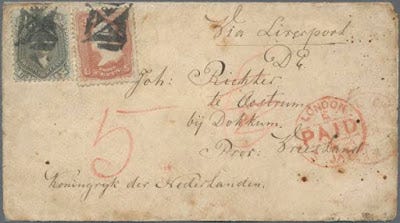 Via Liverpool
DE
Joh: Richter
te Oostrum
bij Dokkum.
Prov: Vriesland
Koningryk der Nederlanden.
5
LONDON
PAID